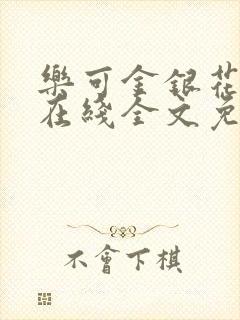 樂可金銀花
在綫全文免
不會下棋